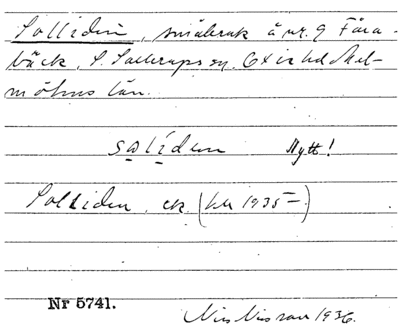 Solliden, småbruk å nr. 9 Fåra-
bäck, S. Sallerups sn. Oxie hd Mal-
möhus län.
salídem Nytt!
Solliden, ek. (bil 1935–)
Nr 5741.
Nils Nilsson 1936.